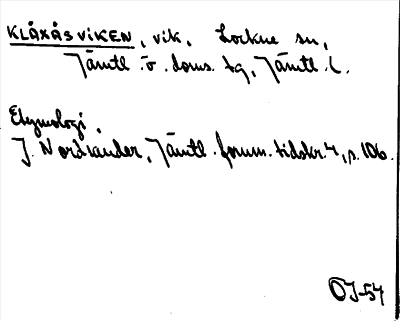 KLÅXÅSVIKEN, vik, Lockne sn,
Jämtl. ö. doms. tg, Jämtl. l.
Etymologi.
J. Nordlander, Jämtl. fornm. tidskr. 4, s. 106.
OJ-54